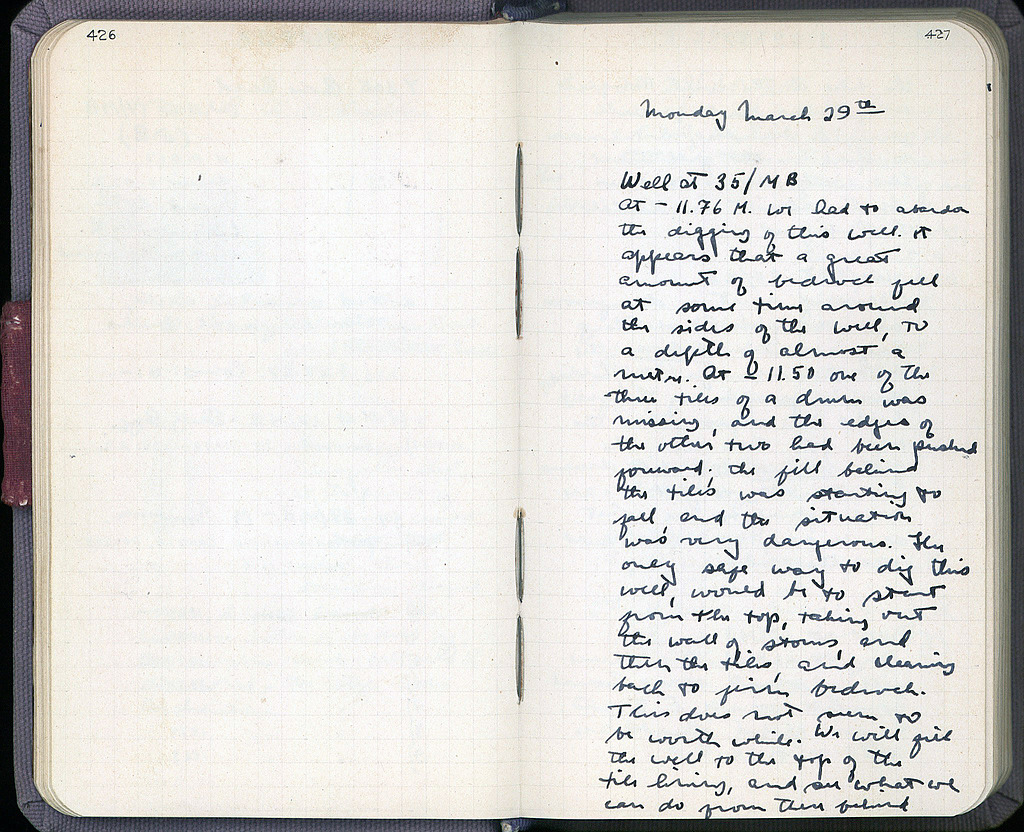 426
427
Monday March 29th
Well at 35/MB
At - 11.76 M. we had to abandon
the digging of this well. It
appears that a great
amount of bedrock fell
at some time around
the sides of the well, to
a depth of almost a
metre. At - 11.50 one of the
three tiles of a drum was
missing, and the edges of
the other two had been pushed
forward; the fill behind
the tiles was starting to
fall, and the situation
was very dangerous. The
only safe way to dig this
well, would be to start
from the top, taking out
the wall of stones, and
then the tiles, and cleaning
back to firm bedrock.
This does not seem to
be worth while. We will fill
the well to the top of the
tile lining, and see what we
can do from there behind